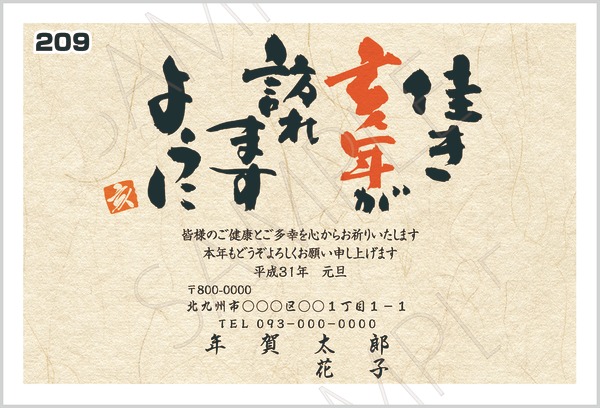 209
佳き
亥年が
訪れ
ます
ように
亥
皆様のご健康とご多幸を心からお祈りいたします
本年もどうぞよろしくお願い申し上げます
平成31年 元旦
〒800-0000
北九州市○○○区○○1丁目1-1
TEL 093-000-0000
年賀 太郎
花子
SAMPLE
SAMPLE
SAMPLE